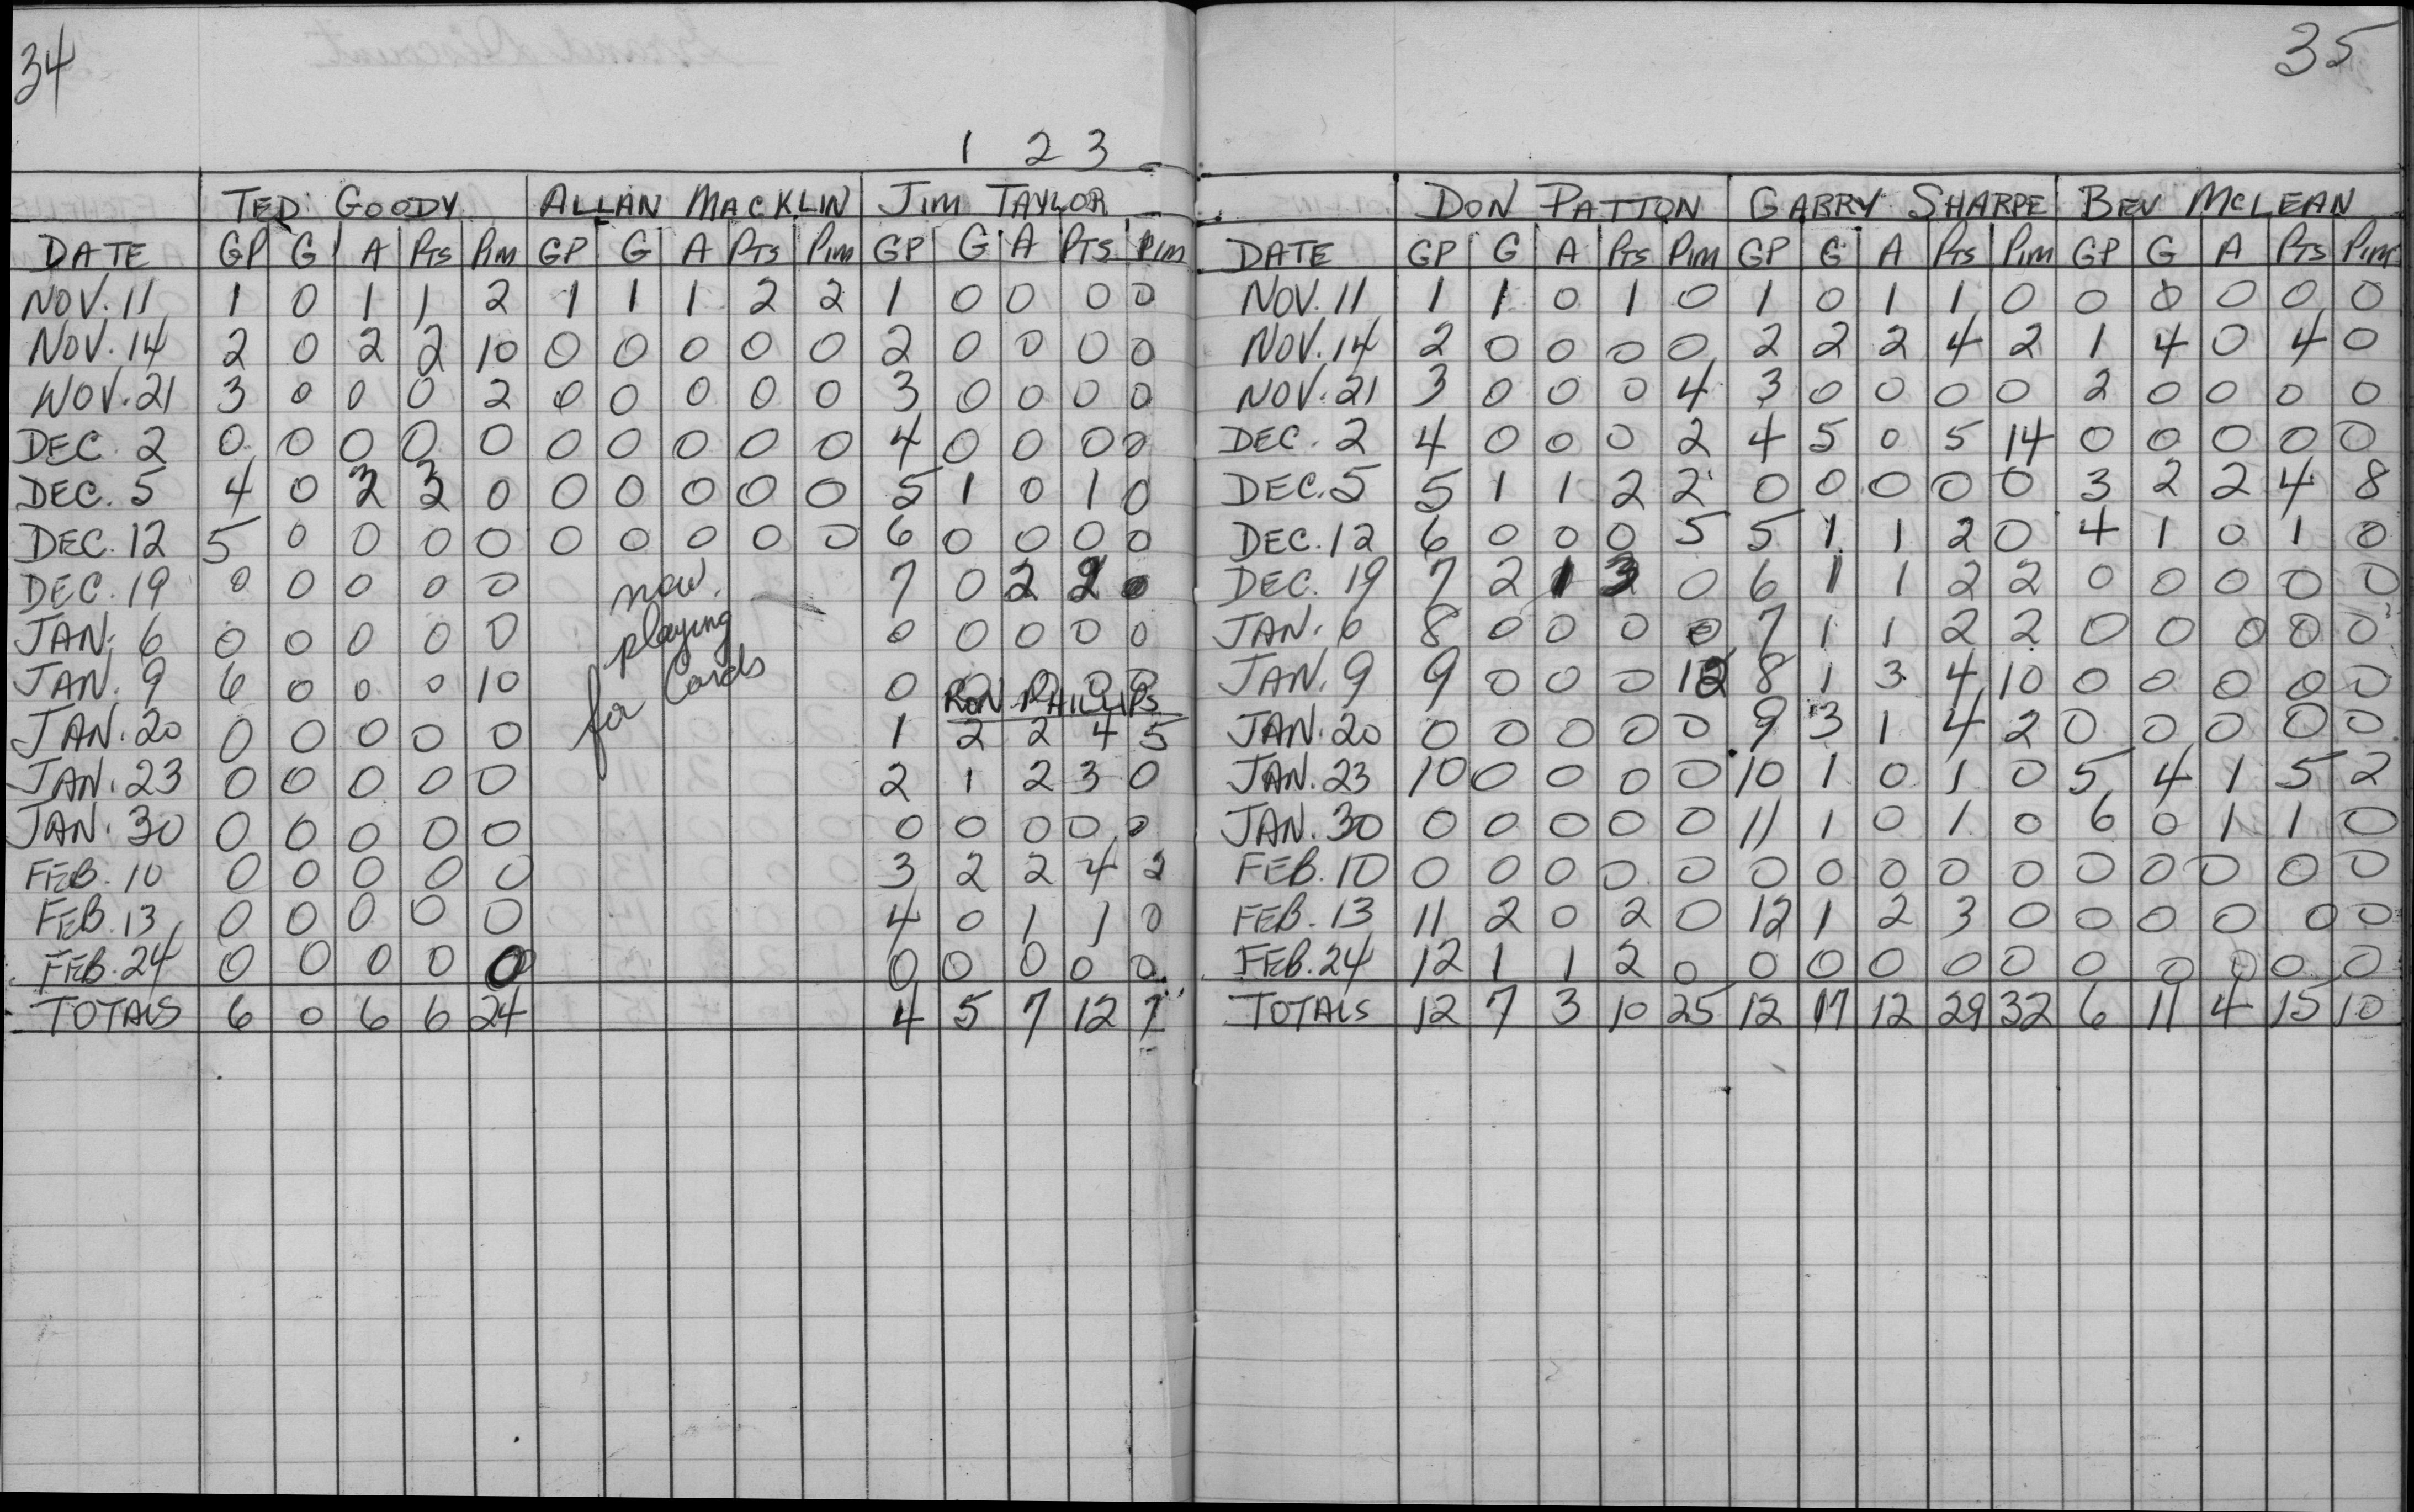 34
1 2 3
TED GOODY ALLAN MACKLIN JIM TAYLOR
DATE GP G A PTS PIM GP G A PTS PIM GP G A PTS PIM
NOV. 11 1 0 1 1 2 1 1 1 2 2 1 0 0 0 0
NOV. 14 2 0 2 2 10 0 0 0 0 0 2 0 0 0 0
NOV. 21 3 0 0 0 2 0 0 0 0 0 3 0 0 0 0
DEC. 2 0 0 0 0 0 0 0 0 0 0 4 0 0 0 0
DEC. 5 4 0 3 3 0 0 0 0 0 0 5 1 0 1 0
DEC. 12 5 0 0 0 0 0 0 0 0 0 6 0 0 0 0
DEC. 19 0 0 0 0 0 now 7 0 2 2 0
JAN. 6 0 0 0 0 0 playing 0 0 0 0 0
JAN. 9 6 0 0 0 10 for Cards 0 0 0 0 0
RON PHILLIPS
JAN. 20 0 0 0 0 0 1 2 2 4 5
JAN. 23 0 0 0 0 0 2 1 2 3 0
JAN. 30 0 0 0 0 0 0 0 0 0 0
FEB. 10 0 0 0 0 0 3 2 2 4 2
FEB. 13 0 0 0 0 0 4 0 1 1 0
FEB. 24 0 0 0 0 0 0 0 0 0 0
TOTALS 6 0 6 6 24 4 5 7 12 7
35
DON PATTON GARRY SHARPE BEV MCLEAN
DATE GP G A PTS PIM GP G A PTS PIM GP G A PTS PIM
NOV. 11 1 1 0 1 0 1 0 1 1 0 0 0 0 0 0
NOV. 14 2 0 0 0 0 2 2 2 4 2 1 4 0 4 0
NOV. 21 3 0 0 0 4 3 0 0 0 0 2 0 0 0 0
DEC. 2 4 0 0 0 2 4 5 0 5 14 0 0 0 0 0
DEC. 5 5 1 1 2 2 0 0 0 0 0 3 2 2 4 8
DEC. 12 6 0 0 0 5 5 1 1 2 0 4 1 0 1 0
DEC. 19 7 2 1 3 0 6 1 1 2 2 0 0 0 0 0
JAN. 6 8 0 0 0 0 7 1 1 2 2 0 0 0 0 0
JAN. 9 9 0 0 0 12 8 1 3 4 10 0 0 0 0 0
JAN. 20 0 0 0 0 0 9 3 1 4 2 0 0 0 0 0
JAN. 23 10 0 0 0 0 10 1 0 1 0 5 4 1 5 2
JAN. 30 0 0 0 0 0 11 1 0 1 0 6 0 1 1 0
FEB. 10 0 0 0 0 0 0 0 0 0 0 0 0 0 0 0
FEB. 13 11 2 0 2 0 12 1 2 3 0 0 0 0 0 0
FEB. 24 12 1 1 2 0 0 0 0 0 0 0 0 0 0 0
TOTALS 12 7 3 10 25 12 17 12 29 32 6 11 4 15 10